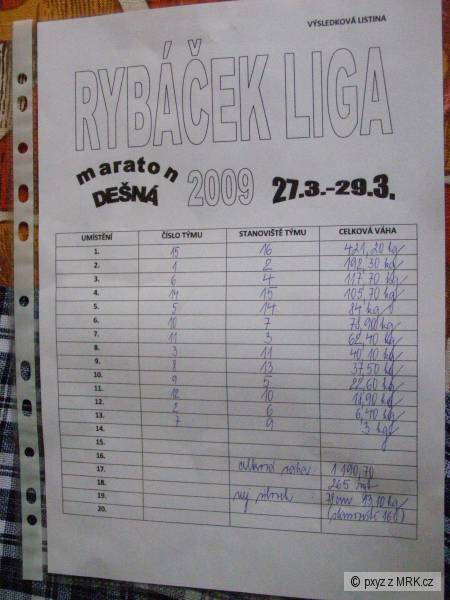 VÝSLEDKOVÁ LISTINA
RYBÁČEK LIGA
maraton
DEŠNÁ
2009 27.3.-29.3.
UMÍSTĚNÍ ČÍSLO TÝMU STANOVIŠTĚ TÝMU CELKOVÁ VÁHA
1. 15 16 421,20 kg
2. 1 2 192,30 kg
3. 6 4 117,70 kg
4. 14 15 105,70 kg
5. 5 14 84 kg
6. 10 7 78,90 kg
7. 11 3 62,40 kg
8. 3 11 40,10 kg
9. 8 13 37,50 kg
10. 9 5 22,60 kg
11. 12 10 18,90 kg
12. 2 6 6,40 kg
13. 7 9 3 kg
14.
15.
16.
17. celková váha 1 190,70
18. 265
19. 13,10 kg
20.
© pxyz z MRK.cz